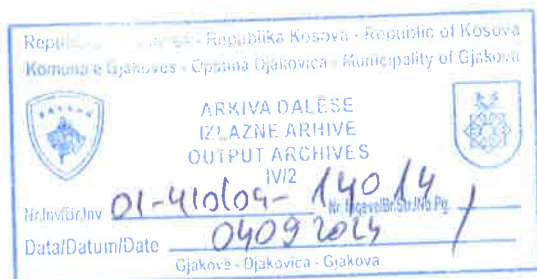 Republika Kosova - Republic of Kosova
Komuna e Gjakovës - Opština Djakovica - Municipality of Gjakova
ARKIVA DALËSE
IZLAZNE ARHIVE
OUTPUT ARCHIVES
IV/2
Nr.Inv/Br.Jnv 01-410/04- 14014 Nr. Br.Str./No.Pg. /
Data/Datum/Date 04092024
Gjakovë - Djakovica - Gjakova